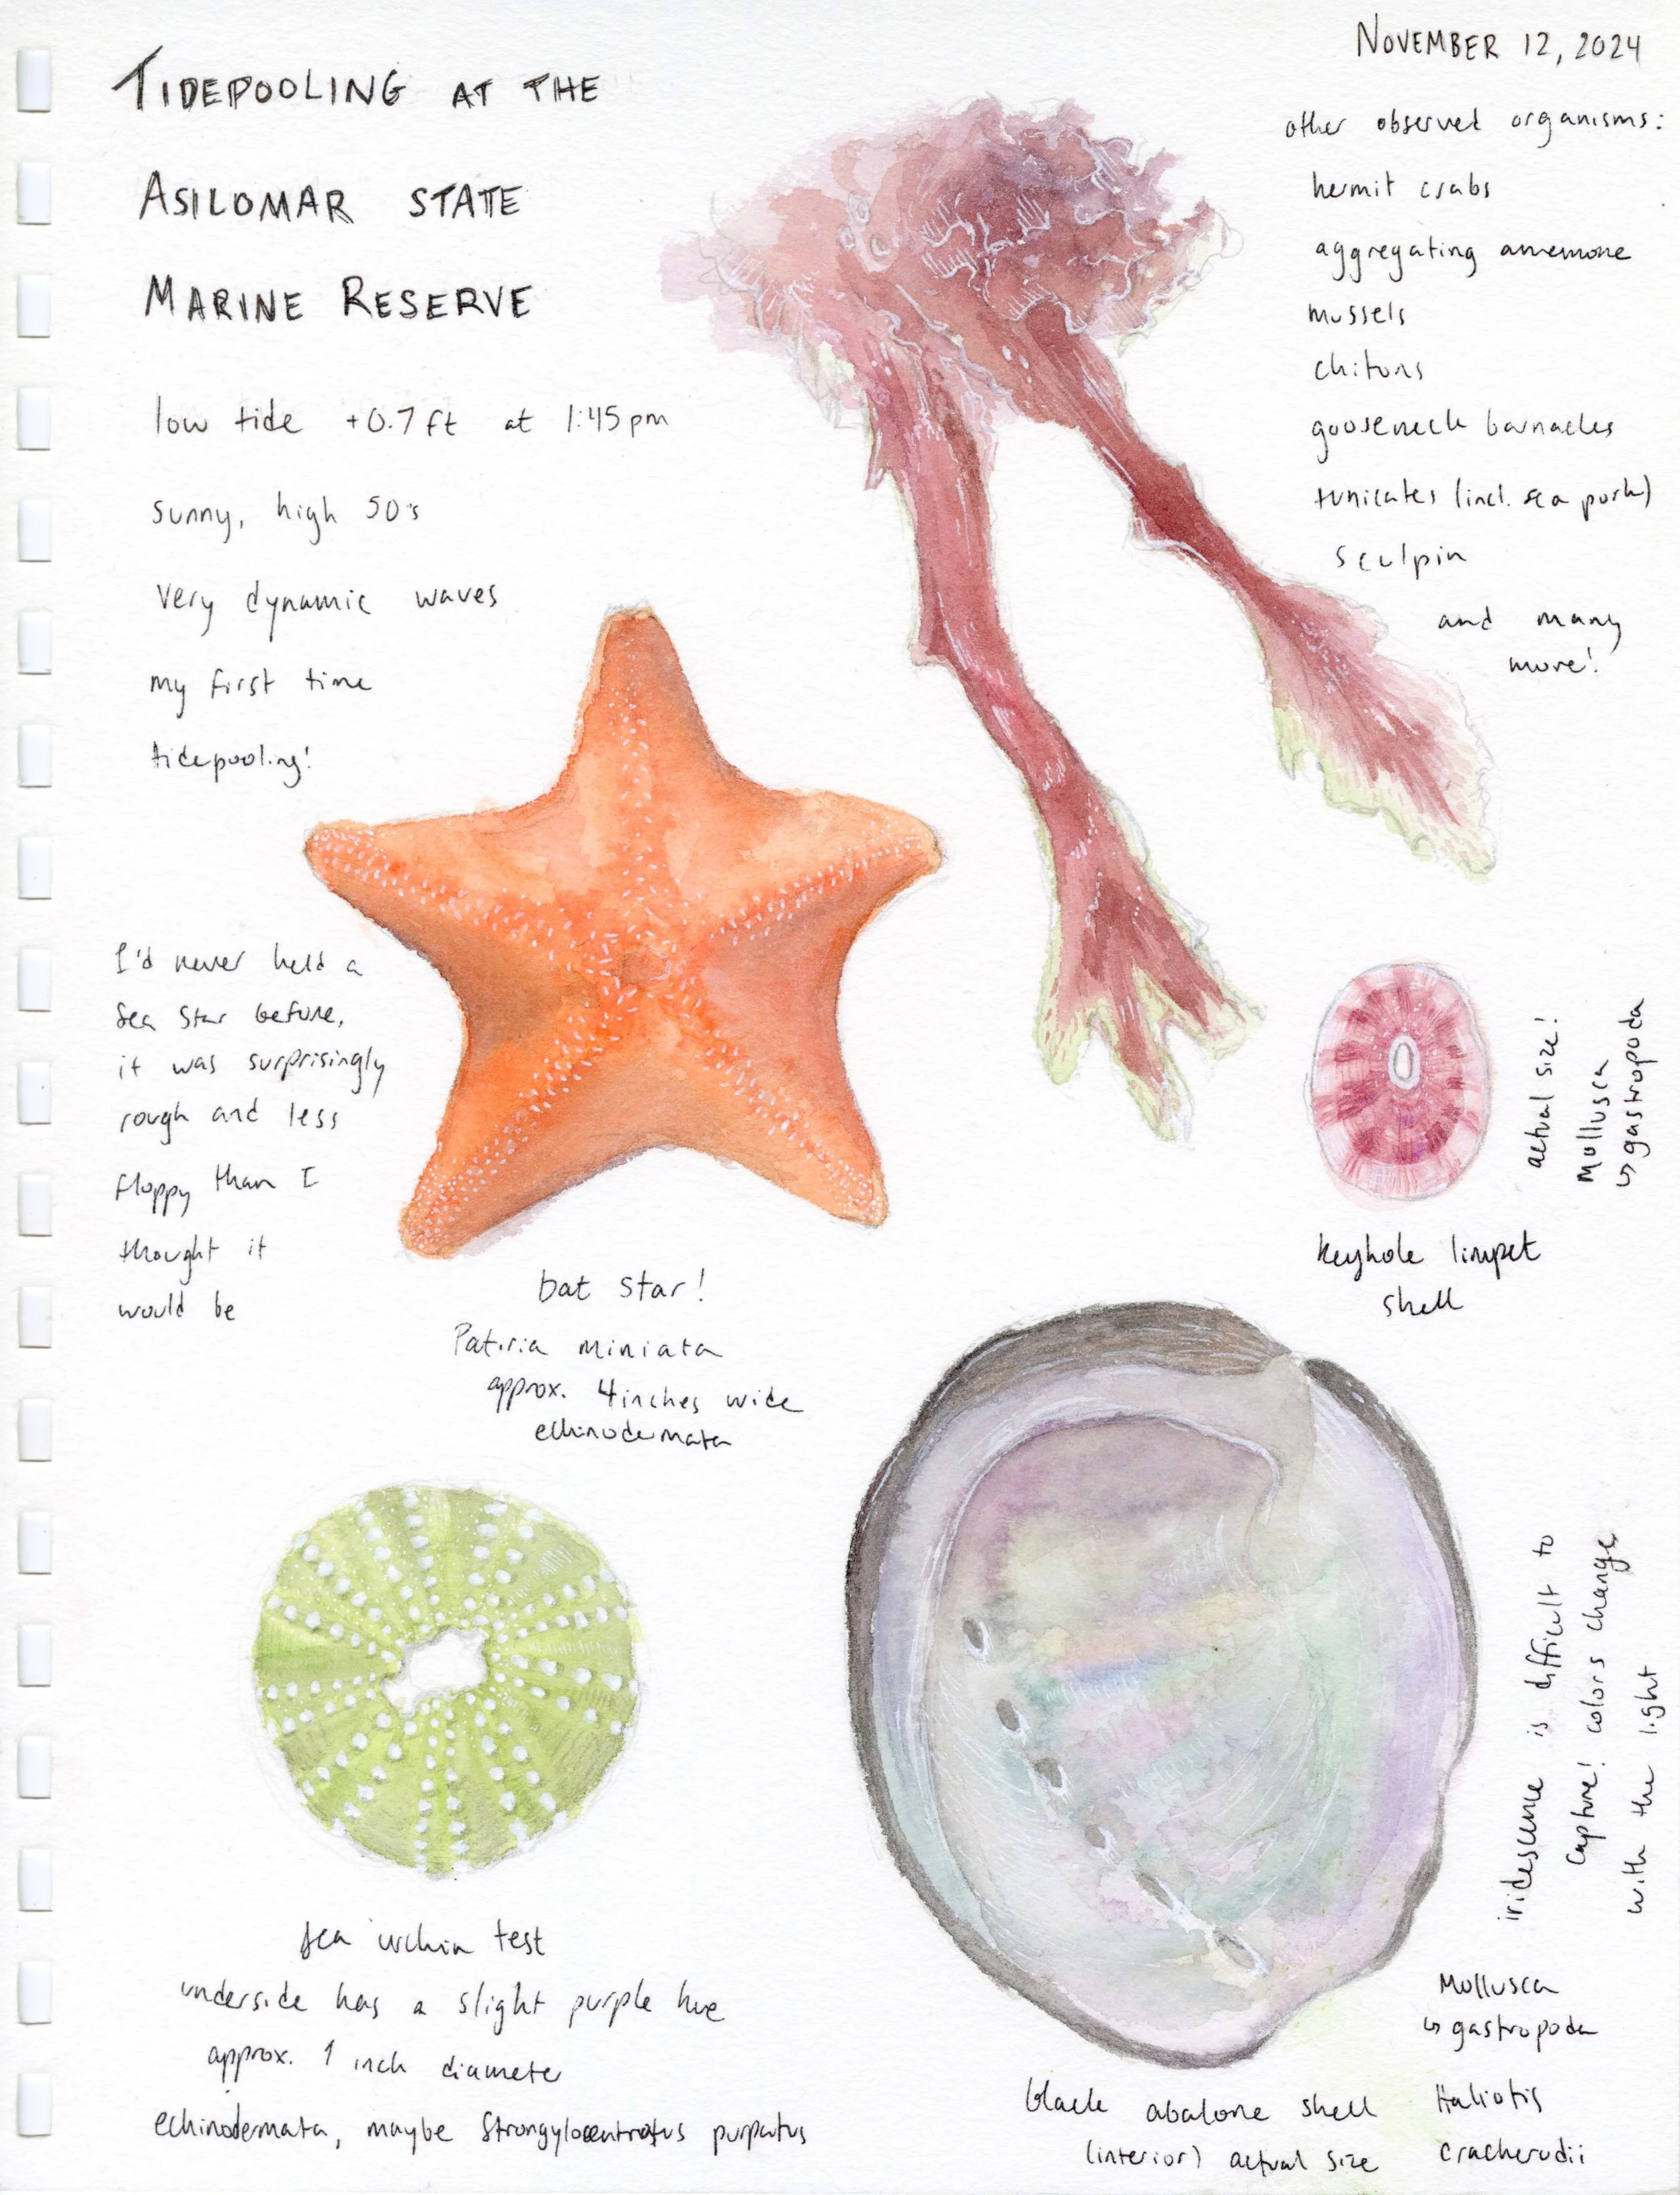 NOVEMBER 12, 2024
TIDEPOOLING AT THE
ASILOMAR STATE
MARINE RESERVE
low tide +0.7 ft at 1:45 pm
sunny, high 50's
very dynamic waves
my first time
tidepooling!
other observed organisms:
hermit crabs
aggregating anemone
mussels
chitons
gooseneck barnacles
tunicates (incl. sea pork)
sculpin
and many
more!
I'd never held a
sea star before,
it was surprisingly
rough and less
floppy than I
thought it
would be
bat star!
Patiria miniata
approx. 4 inches wide
echinodermata
actual size!
Mollusca
↳ gastropoda
keyhole limpet
shell
sea urchin test
underside has a slight purple hue
approx. 1 inch diameter
echinodermata, maybe Strongylocentrotus purpatus
iridescence is difficult to
capture! colors change
with the light
Mollusca
↳ gastropoda
Haliotis
cracherodii
black abalone shell
(interior) actual size